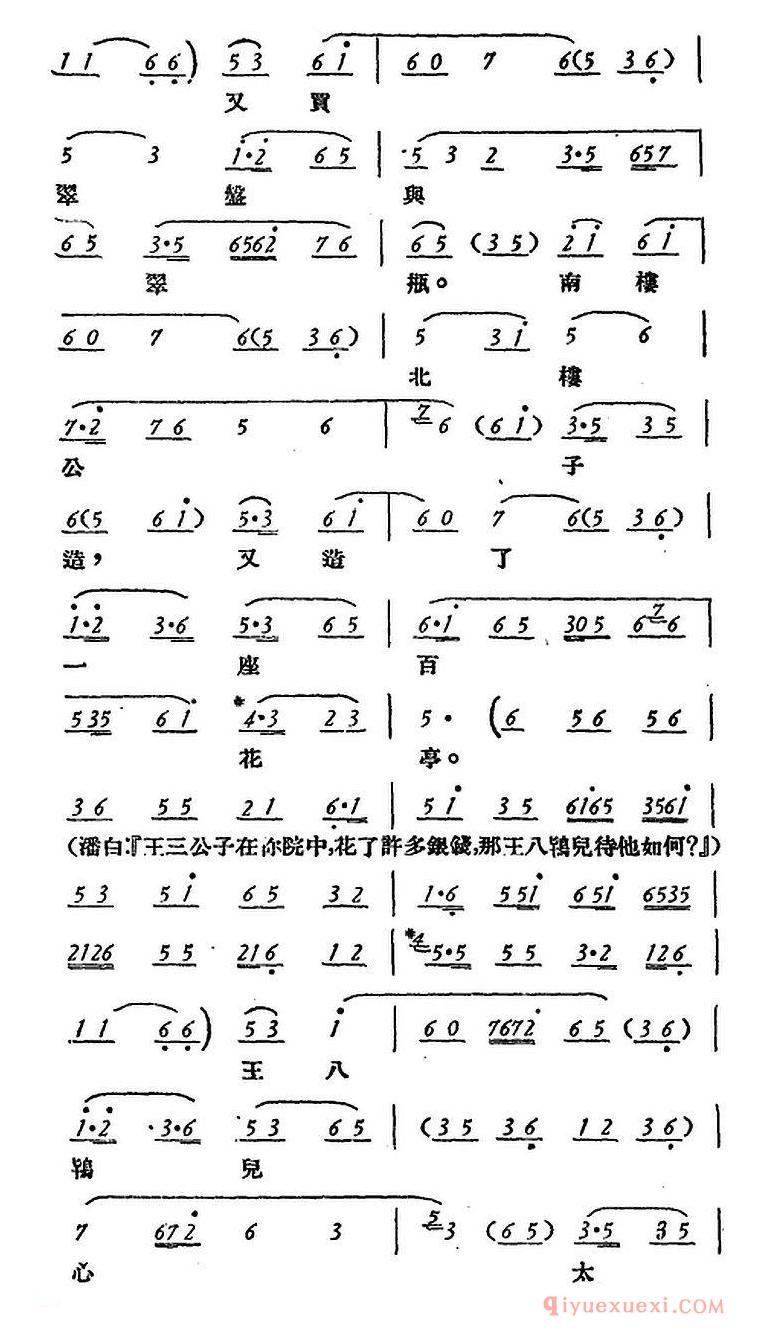 1 1 6 6) 5 3 6 i | 6 0 7 6(5 3 6) |
又 買
5 3 i·2 6 5 | 5 3 2 3·5 657
翠 盤 與
6 5 3·5 6562 7 6 | 6 5 (3 5) 2 i 6 i
翠 瓶。 南 樓
6 0 7 6(5 3 6) | 5 3 i 5 6 |
北 樓
7·2 7 6 5 6 | 7 6 (6 i) 3·5 3 5 |
公 子
6(5 6 i) 5·3 6 i | 6 0 7 6(5 3 6) |
造, 又 造 了
i·2 3·6 5·3 6 5 | 6·i 6 5 305 6 7 6
一 座 百
535 6 i #4·3 2 3 | 5· (6 5 6 5 6 |
花 亭。
3 6 5 5 2 1 6·1 | 5 i 3 5 6i65 356i |
(潘白:『王三公子在你院中,花了許多銀錢,那王八鴇兒待他如何?』)
5 3 5 i 6 5 3 2 | 1·6 55i 65i 6535 |
2126 5 5 216 1 2 | #4 5·5 5 5 3·2 126 |
1 1 6 6) 5 3 i | 6 0 7672 6 5 (3 6) |
王 八
i·2 3·6 5 3 6 5 | (3 5 3 6 1 2 3 6) |
鴇 兒
7 672 6 3 | 5 3 (6 5) 3·5 3 5 |
心 太
qiyuexuexi.com